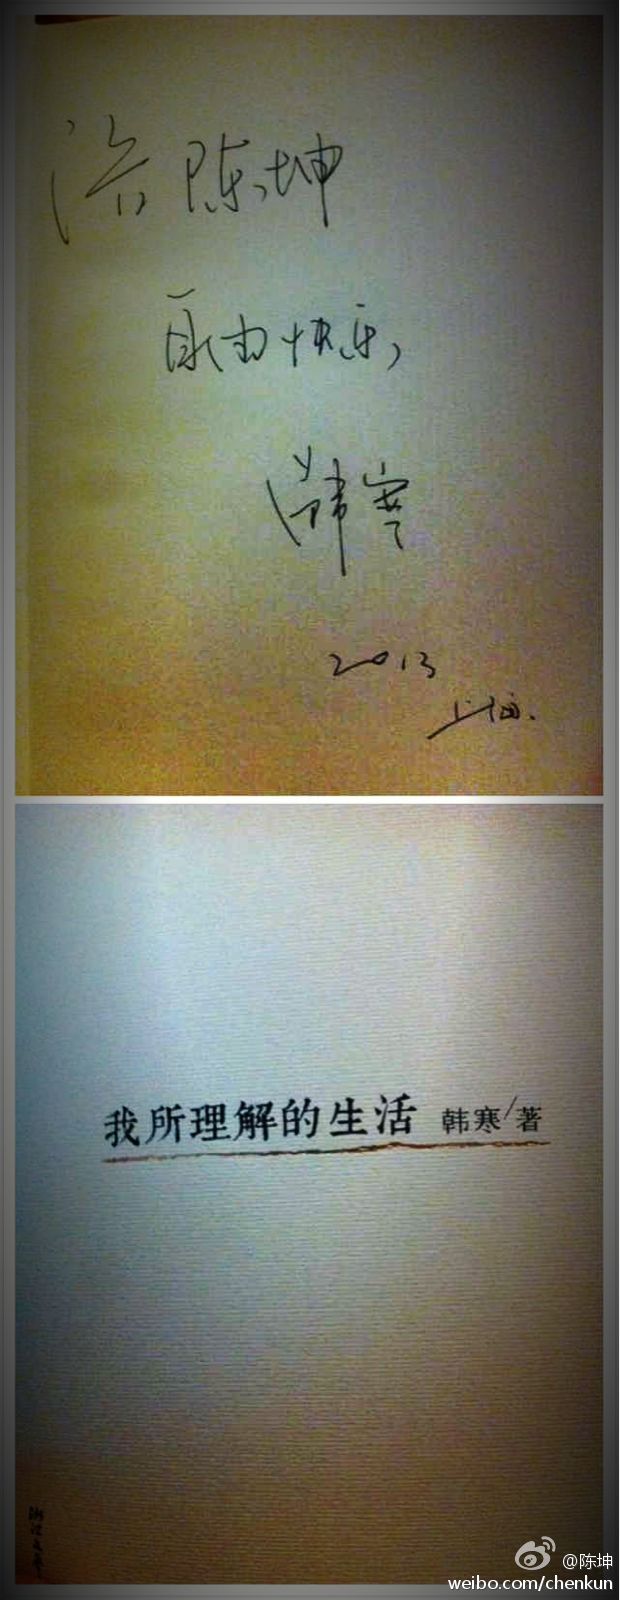 给陈坤
自由快乐，
韩寒
2013
上海.
我所理解的生活 韩寒/著
浙江文艺
@陈坤
weibo.com/chenkun